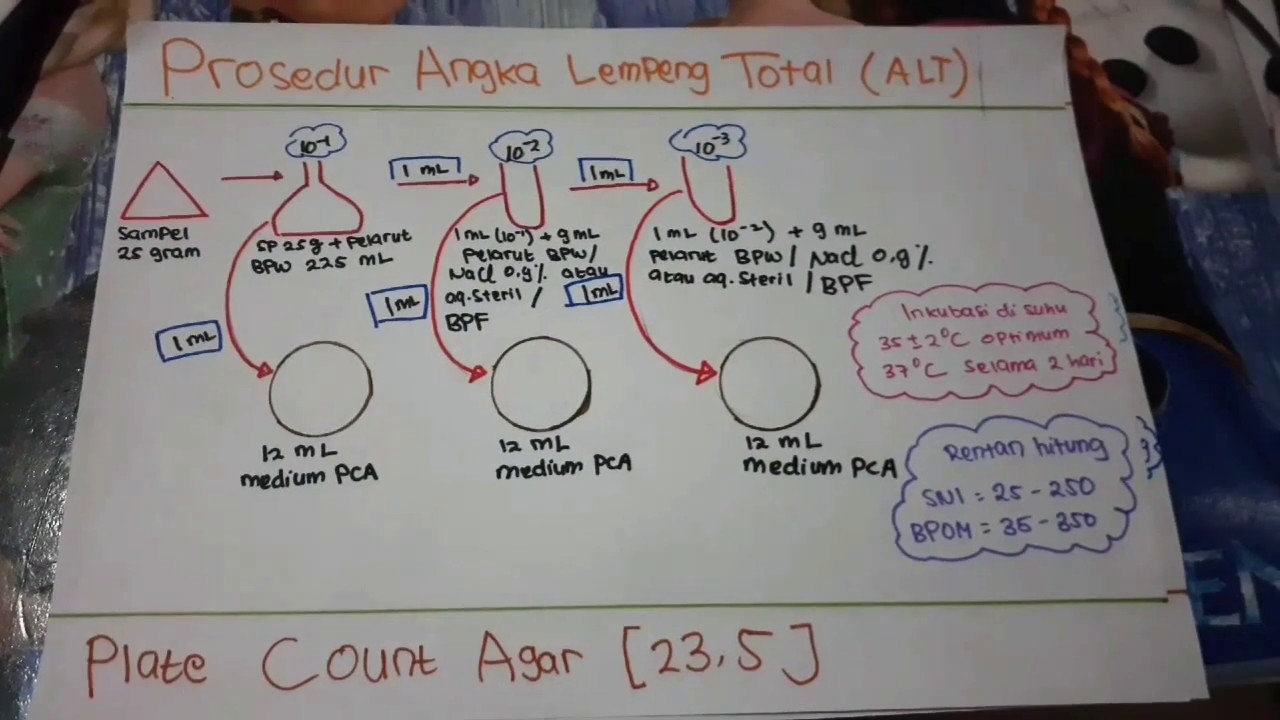 Prosedur Angka Lempeng Total (ALT)
10⁻¹
10⁻²
10⁻³
1 mL
1 mL
Sampel
25 gram
SP 25g + Pelarut
BPW 225 mL
1mL (10⁻¹) + 9mL
Pelarut BPW/
Nacl 0,9% atau
aq.Steril /
BPF
1mL (10⁻²) + 9 mL
Pelarut BPW / Nacl 0,9%
atau aq. Steril / BPF
1 mL
1mL
1mL
Inkubasi di suhu
35±2°C optimum
37°C selama 2 hari
12 mL
medium PCA
12 mL
medium PCA
12 mL
medium PCA
Rentan hitung
SNI = 25 - 250
BPOM = 35 - 350
Plate Count Agar [23,5]
EN